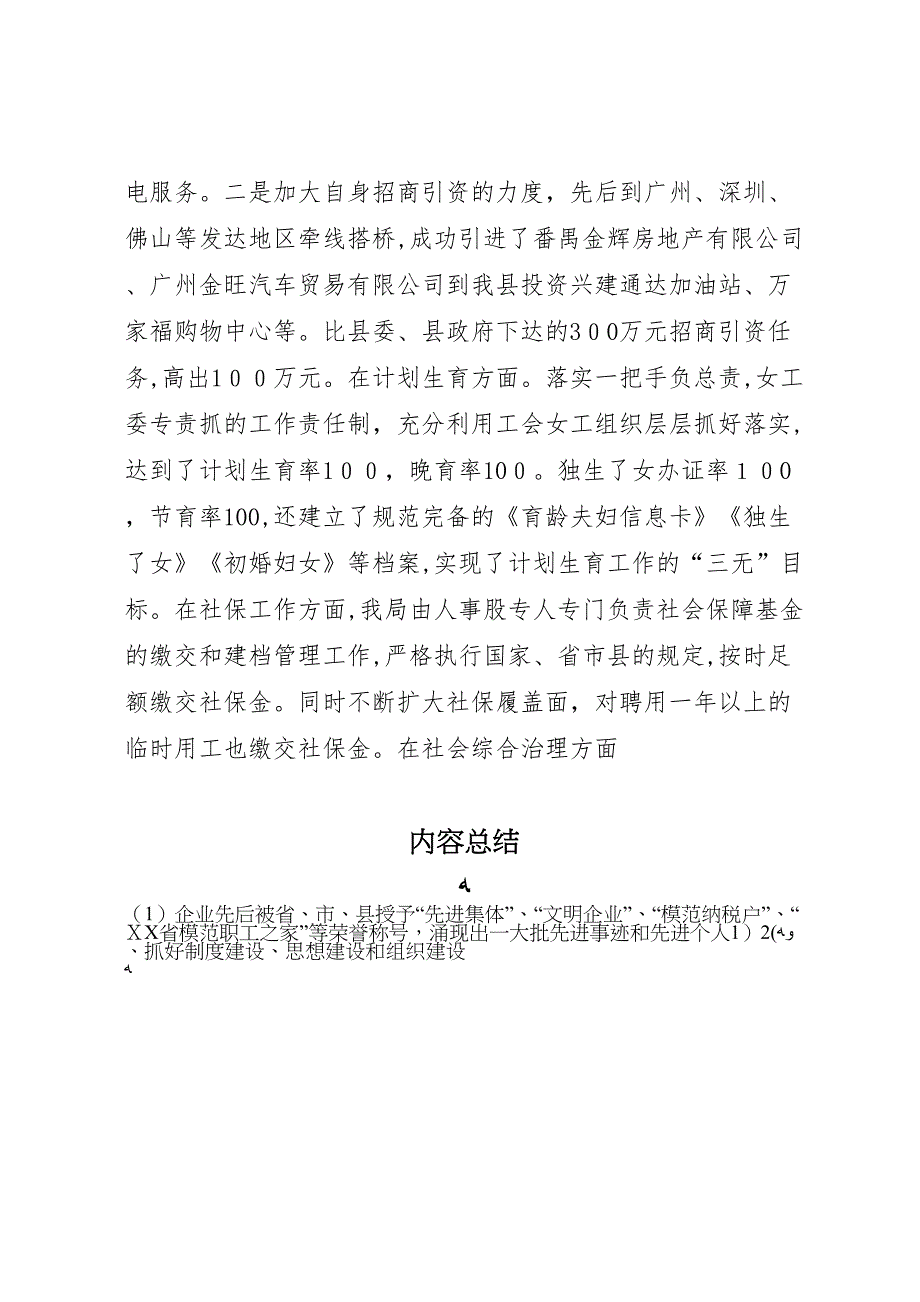 电服务。二是加大自身招商引资的力度，先后到广州、深圳、
佛山等发达地区牵线搭桥,成功引进了番禺金辉房地产有限公司
、广州金旺汽车贸易有限公司到我县投资兴建通达加油站、万
家福购物中心等。比县委、县政府下达的300万元招商引资任
务,高出100万元。在计划生育方面。落实一把手负总责,女工
委专责抓的工作责任制，充分利用工会女工组织层层抓好落实,
达到了计划生育率100，晚育率100。独生了女办证率100
，节育率100,还建立了规范完备的《育龄夫妇信息卡》《独生
了女》《初婚妇女》等档案,实现了计划生育工作的“三无”目
标。在社保工作方面,我局由人事股专人专门负责社会保障基金
的缴交和建档管理工作,严格执行国家、省市县的规定,按时足
额缴交社保金。同时不断扩大社保履盖面，对聘用一年以上的
临时用工也缴交社保金。在社会综合治理方面
内容总结
（1）企业先后被省、市、县授予“先进集体”、“文明企业”、“模范纳税户”、“
XX省模范职工之家”等荣誉称号，涌现出一大批先进事迹和先进个人1）2(
、抓好制度建设、思想建设和组织建设